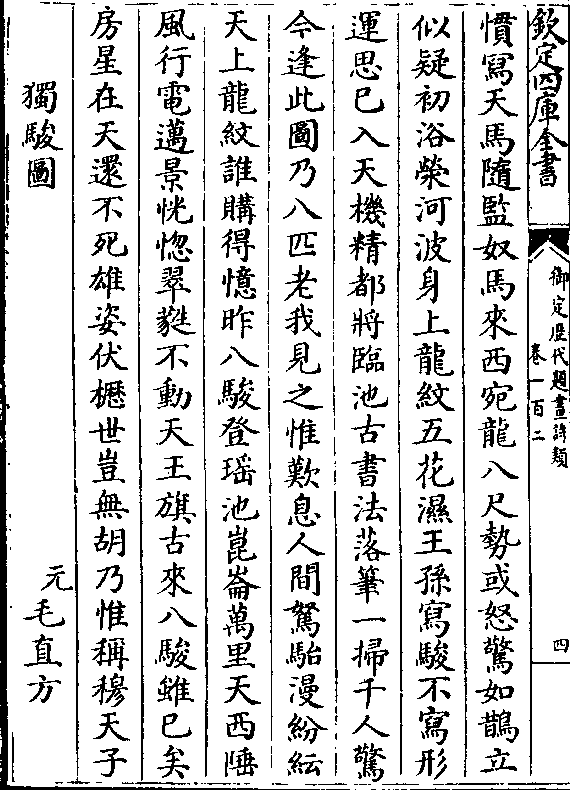 欽定四庫全書
御定歴代題畫詩類
卷一百二
四
慣冩天馬隨監奴馬來西宛龍八尺勢或怒驚如鵲立
似疑初浴榮河波身上龍紋五花濕王孫寫駿不寫形
運思已入天機精都將臨池古書法落筆一掃千人驚
今逢此圖乃八匹老我見之惟歎息人間駑駘漫紛紜
天上龍紋誰購得憶昨八駿登瑶池崑崙萬里天西陲
風行電邁景恍惚翠蕤不動天王旗古來八駿雖已矣
房星在天還不死雄姿伏櫪世豈無胡乃惟稱穆天子
獨駿圖
元毛直方